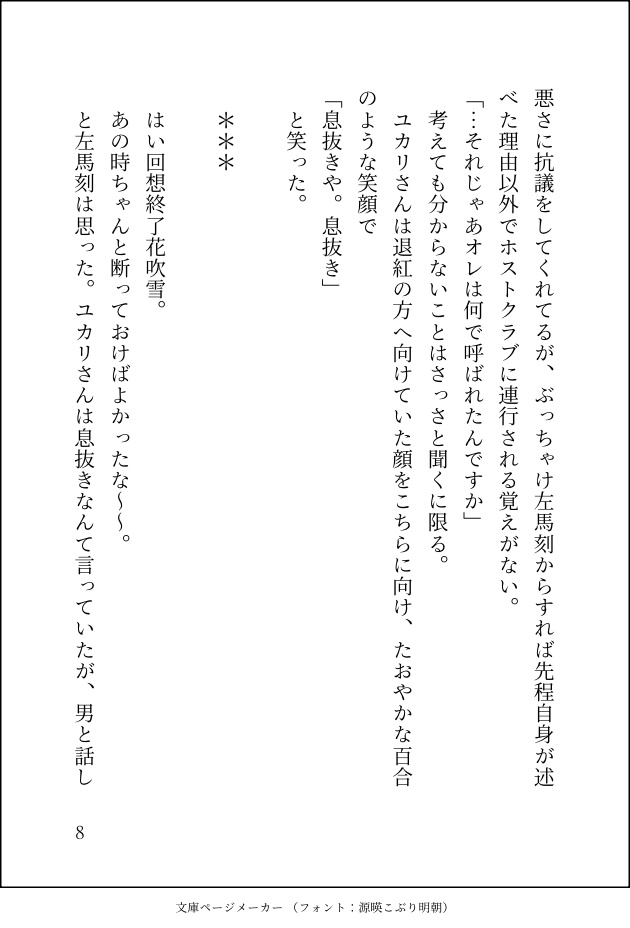 悪さに抗議をしてくれてるが、ぶっちゃけ左馬刻からすれば先程自身が述
べた理由以外でホストクラブに連行される覚えがない。
「…それじゃあオレは何で呼ばれたんですか」
考えても分からないことはさっさと聞くに限る。
ユカリさんは退紅の方へ向けていた顔をこちらに向け、たおやかな百合
のような笑顔で
「息抜きや。息抜き」
と笑った。
＊＊＊
はい回想終了花吹雪。
あの時ちゃんと断っておけばよかったな～～。
と左馬刻は思った。ユカリさんは息抜きなんて言っていたが、男と話し
8
文庫ページメーカー （フォント：源暎こぶり明朝）